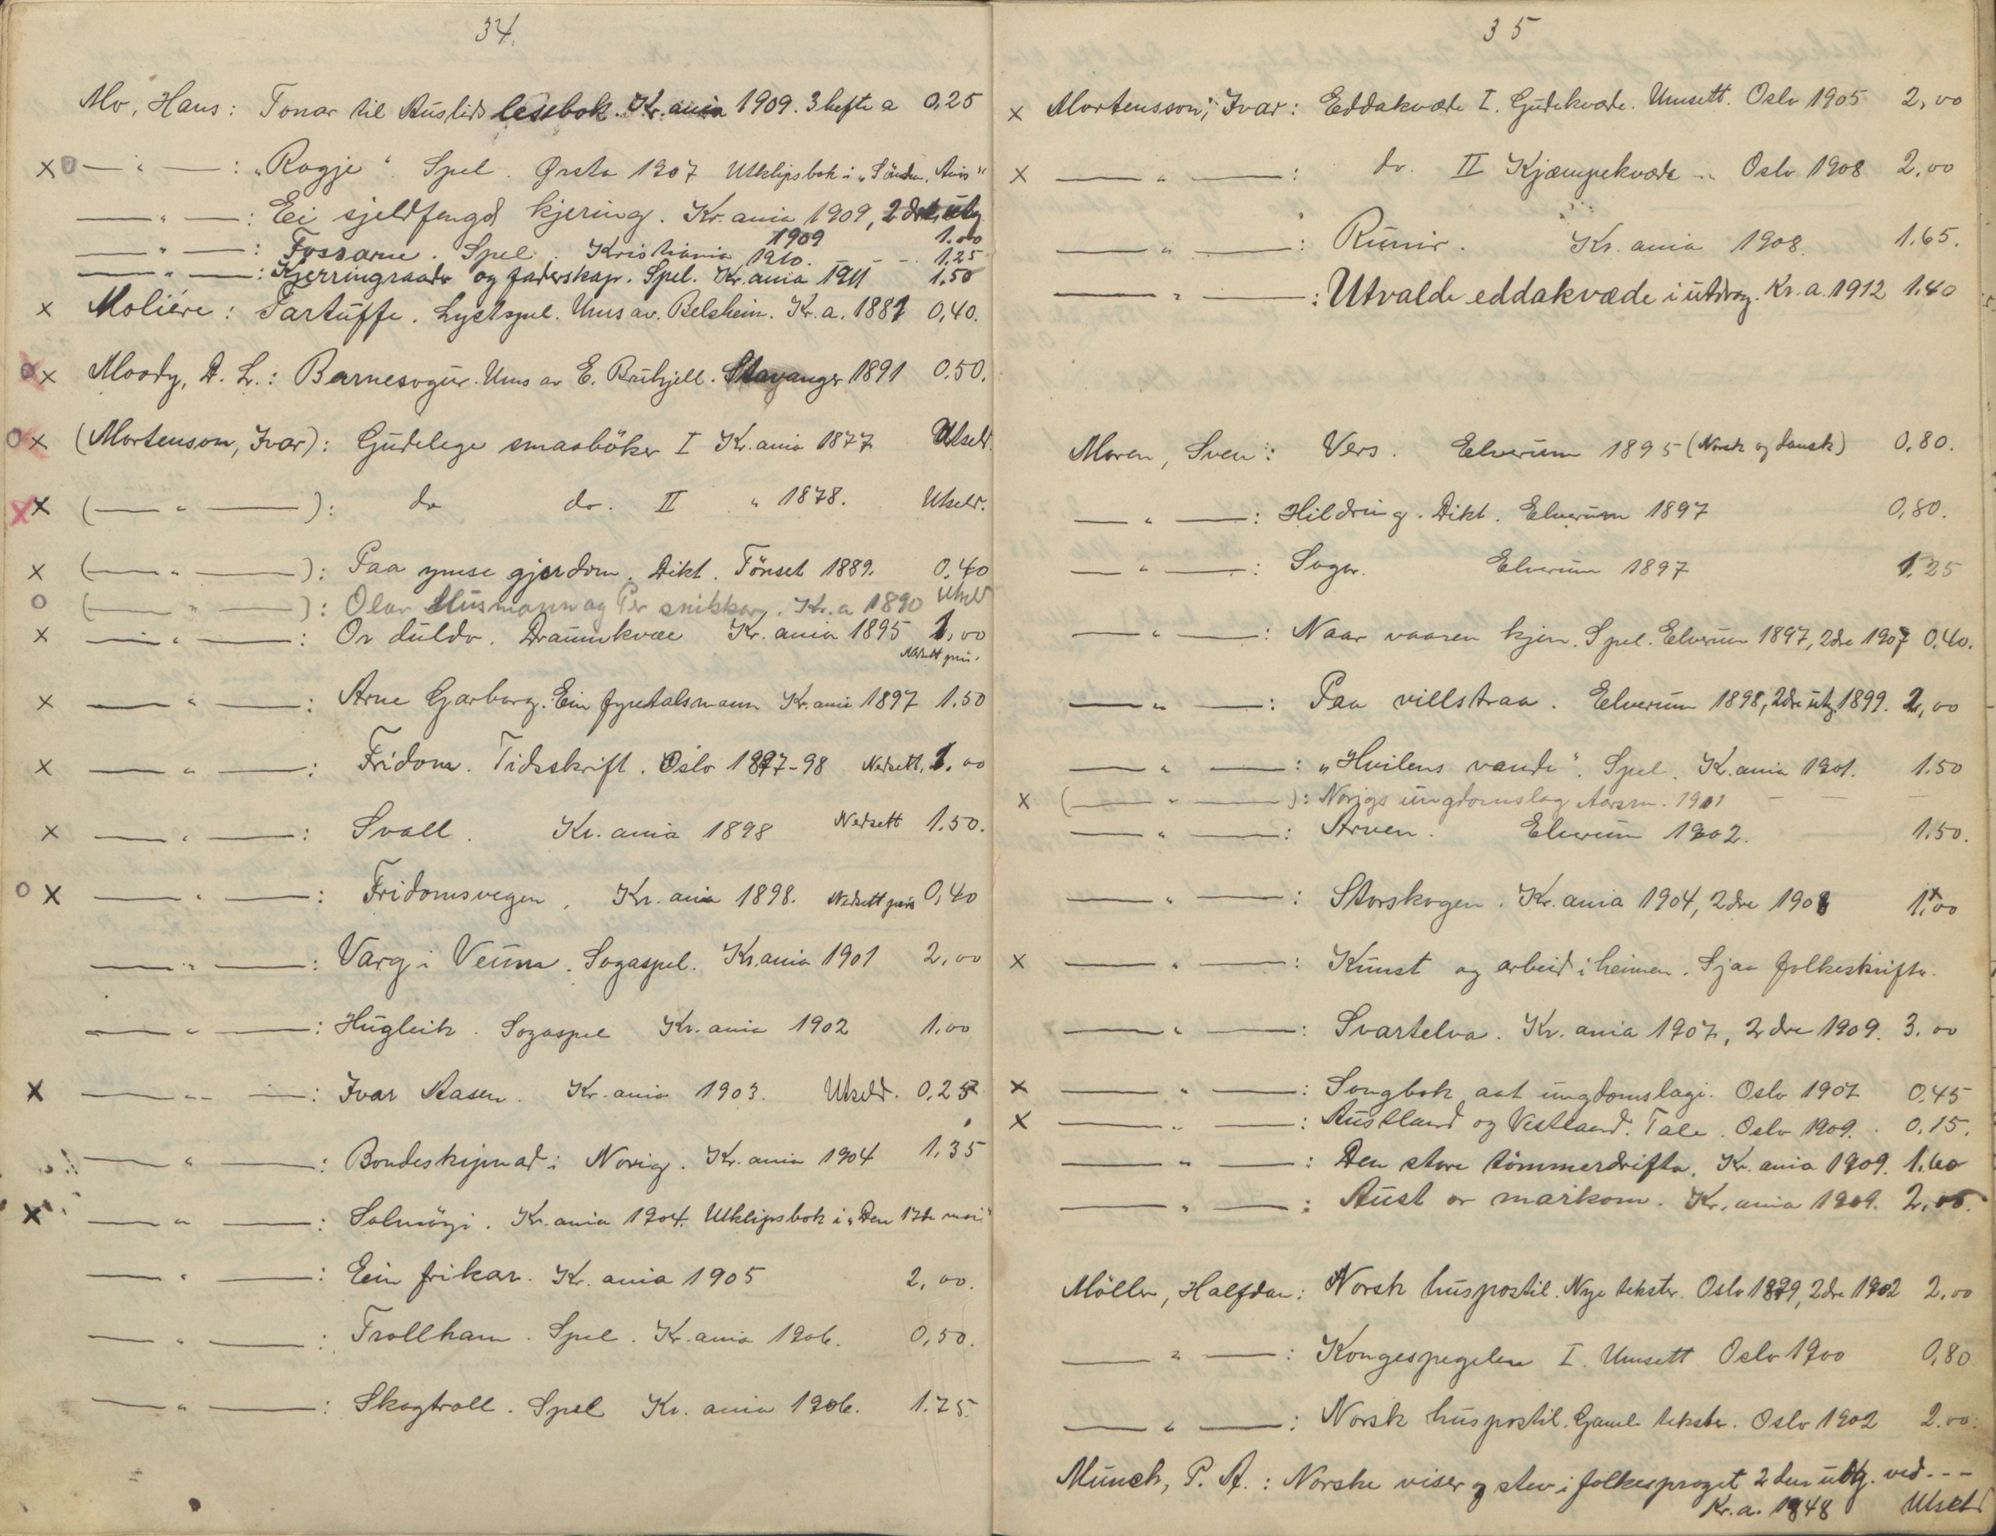 34.
Mo, Hans: Tonar til Austlids lesebok. Kr.ania 1909. 3 hefte a 0,25
x o — " — : „Ragje“. Spel. Ørsta 1907 Utklipsbok i „Söndm. Avis“
— " — : Ei sjeldfengd kjering. Kr. ania 1909, 2dre utg
1909 1.00
— " — : Fossarne. Spel. Kristiania 1910. - - - 1.25
— " — : Kjerringraado og faderskap. Spel. Kr. ania 1911 1.50
x Moliére: Tartuffe. Lystspel. Ums av. Belsheim. Kr. a. 1881 0,40.
o x Moody, D. L.: Barnesogur. Ums av E. Bruhjell. Stavanger 1891 0.50.
o x (Mortenson, Ivar): Gudelege smaabøker I Kr. ania 1877 Utseld.
x x (— " —): do do. II " 1878. Utseld.
x (— " —): Paa ymse gjerdom. Dikt. Tönset 1889. 0,40
o (— " —): Olav Husmann og Per snikkar. Kr. a 1890 Utseld
x — " — : Or duldo. Draumkvæe Kr. ania 1895 1,00
Nedsett pris.
x — " — : Arne Garborg. Ein fyretalsmann Kr. ania 1897 1.50
x — " — : Fridom. Tidsskrift. Oslo 1897-98 Nedsett, 1.00
x — " — : Svall. Kr. ania 1898 Nedsett 1.50.
o x — " — : Fridomsvegen. Kr. ania 1898. Nedsett pris 0,40
— " — : Varg i Veum. Sogaspel. Kr. ania 1901 2,00
— " — : Hugleik. Sogaspel Kr. ania 1902 1.00
x — " — : Ivar Aasen. Kr. ania 1903. Utseld. 0,25
— " — : Bondeskipnad i Norig. Kr. ania 1904 1,35
x — " — : Solmöyi. Kr. ania 1904. Utklipsbok i „Den 17de mai“
— " — : Ein frikar. Kr. ania 1905 2,00.
— " — : Trollham. Spel. Kr. ania 1906. 0,50.
— " — : Skogtroll. Spel Kr. ania 1906. 1.75.
35
x Mortensson, Ivar: Eddakvæde I. Gudekvæde. Umsett. Oslo 1905 2,00
x — " — : do. II Kjæmpekvæde " Oslo 1908 2,00
— " — : Runir. Kr. ania 1908. 1.65.
— " — : Utvalde eddakvæde i utdrag. Kr. a. 1912 1.40
Moren, Sven: Vers. Elverum 1895 (Norsk og dansk) 0,80.
— " — : Hildring. Dikt. Elverum 1897 0,80.
— " — : Sogor. Elverum 1897 1.25
— " — : Naar vaaren kjem. Spel. Elverum 1897, 2dre 1907 0,40.
— " — : Paa villstraa. Elverum 1898, 2dre utg. 1899. 2,00
— " — : „Hvilens vande“. Spel. Kr. ania 1901. 1.50
x (— " —): Norigs ungdomslag Aarsm. 1901 — — —
— " — : Arven. Elverum 1902. 1.50.
— " — : Storskogen. Kr. ania 1904, 2dre 1908 1.00
x — " — : Kunst og arbeid i heimen. Sjaa folkeskrifter.
— " — : Svartelva. Kr. ania 1907, 2dre 1909. 3.00
x — " — : Songbok aat ungdomslagi. Oslo 1907 0,45
x — " — : Austland og Vestland. Tale. Oslo 1909. 0.15.
— " — : Den store tömmerdrifta. Kr. ania 1909. 1.60
— " — : Aust or markom. Kr. ania 1909. 2,00.
Möller, Halfdan: Norsk huspostil. Nye tekster. Oslo 1899, 2dre 1902 2,00
— " — : Kongespegelen I. Umsett Oslo 1900 0,80
— " — : Norsk huspostil. Gamle tekster. Oslo 1902 2.00.
Munch, P. A.: Norske viser og stev i folkesproget 2den utg. ved - - -
Kr. a. 1848 Utseld